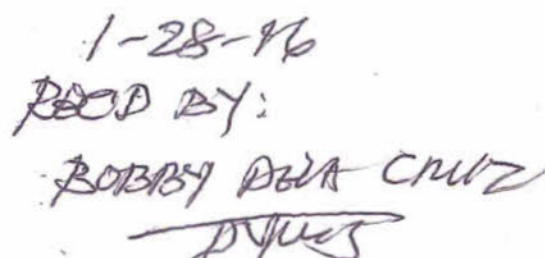 1-28-16
RECD BY:
BOBBY DELA CRUZ